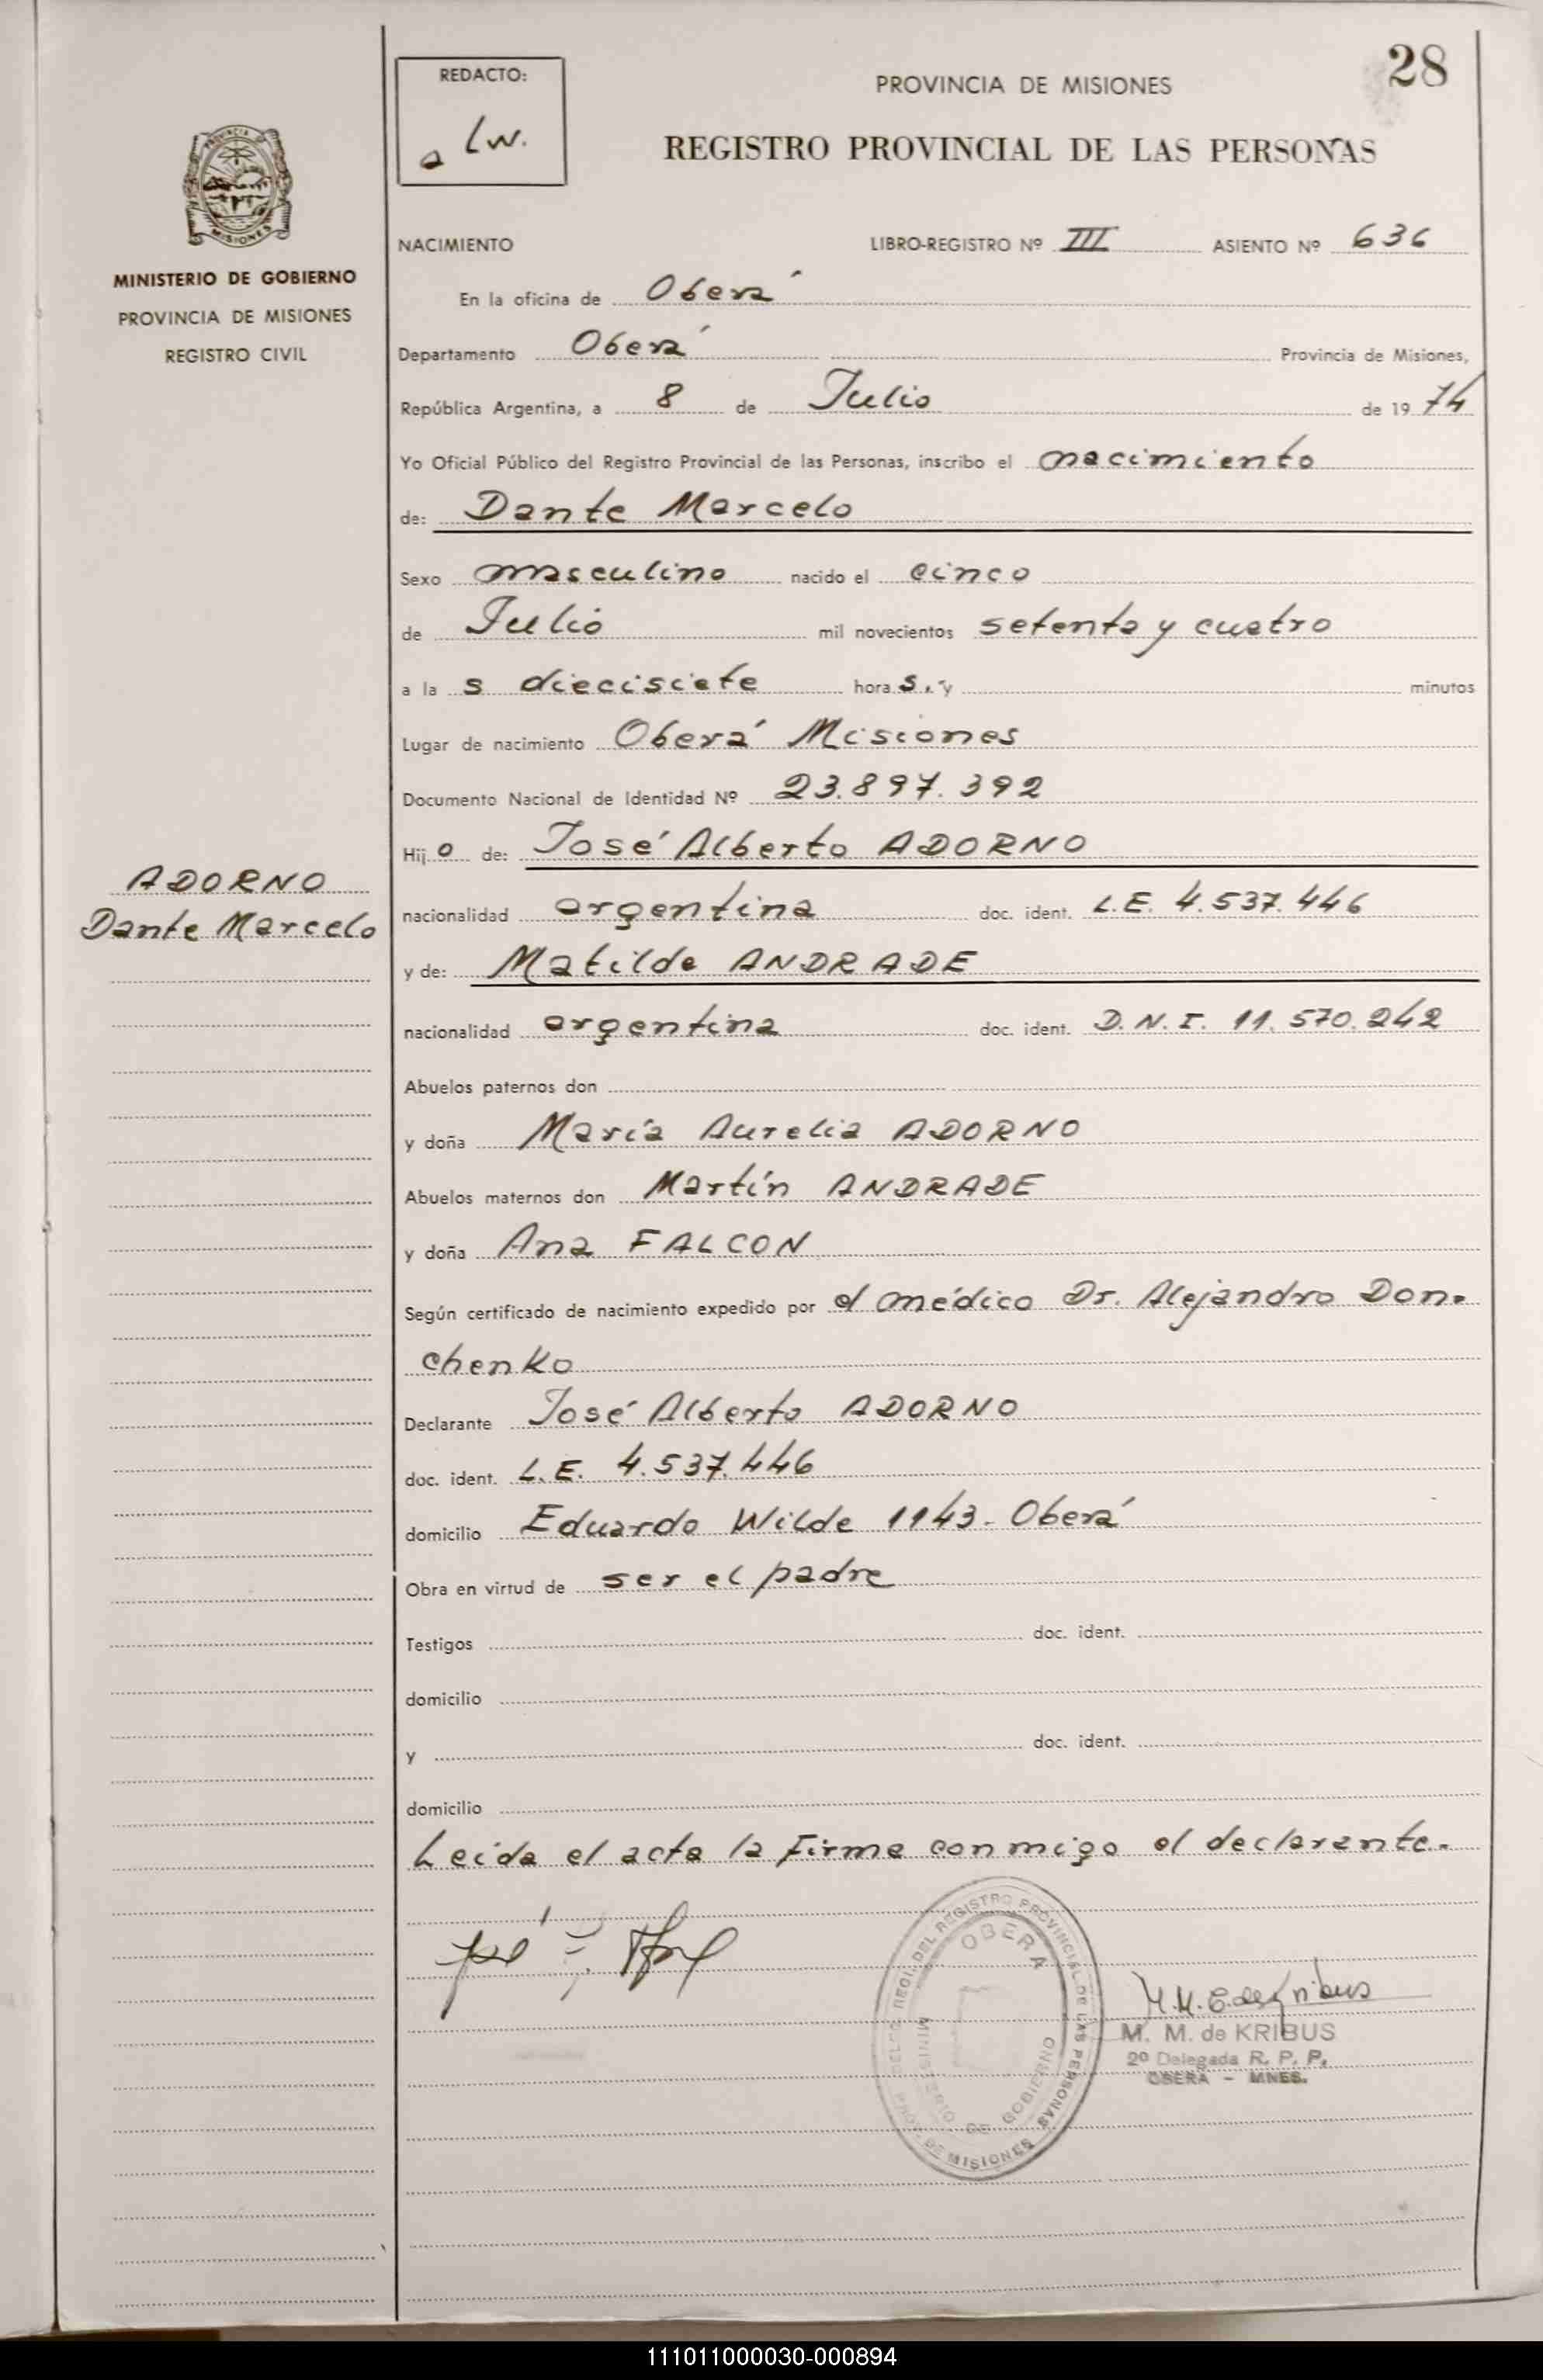 28
REDACTO:
a Lw.
PROVINCIA DE MISIONES
REGISTRO PROVINCIAL DE LAS PERSONAS
PROVINCIA DE
MISIONES
MINISTERIO DE GOBIERNO
PROVINCIA DE MISIONES
REGISTRO CIVIL
NACIMIENTO LIBRO-REGISTRO Nº III ASIENTO Nº 636
En la oficina de Oberá
Departamento Oberá Provincia de Misiones,
República Argentina, a 8 de Julio de 1974
Yo Oficial Público del Registro Provincial de las Personas, inscribo el nacimiento
de: Dante Marcelo
Sexo masculino nacido el cinco
de Julio mil novecientos setenta y cuatro
a la s diecisiete hora s. y minutos
Lugar de nacimiento Oberá Misiones
Documento Nacional de Identidad Nº 23.897.392
Hij o de: José Alberto ADORNO
ADORNO
Dante Marcelo
nacionalidad argentina doc. ident. L.E. 4.537.446
y de: Matilde ANDRADE
nacionalidad argentina doc. ident. D.N.I. 11.570.242
Abuelos paternos don
y doña María Aurelia ADORNO
Abuelos maternos don Martín ANDRADE
y doña Ana FALCON
Según certificado de nacimiento expedido por el médico Dr. Alejandro Don-
chenko
Declarante José Alberto ADORNO
doc. ident. L.E. 4.537.446
domicilio Eduardo Wilde 1143- Oberá
Obra en virtud de ser el padre
Testigos doc. ident.
domicilio
y doc. ident.
domicilio
Leida el acta la firma conmigo el declarante.-
REGISTRO PROVINCIAL DE LAS PERSONAS
OBERA
MINISTERIO DE GOBIERNO
PROV. DE MISIONES
M. M. de KRIBUS
2º Delegada R. P. P.
OBERA - MNES.
111011000030-000894